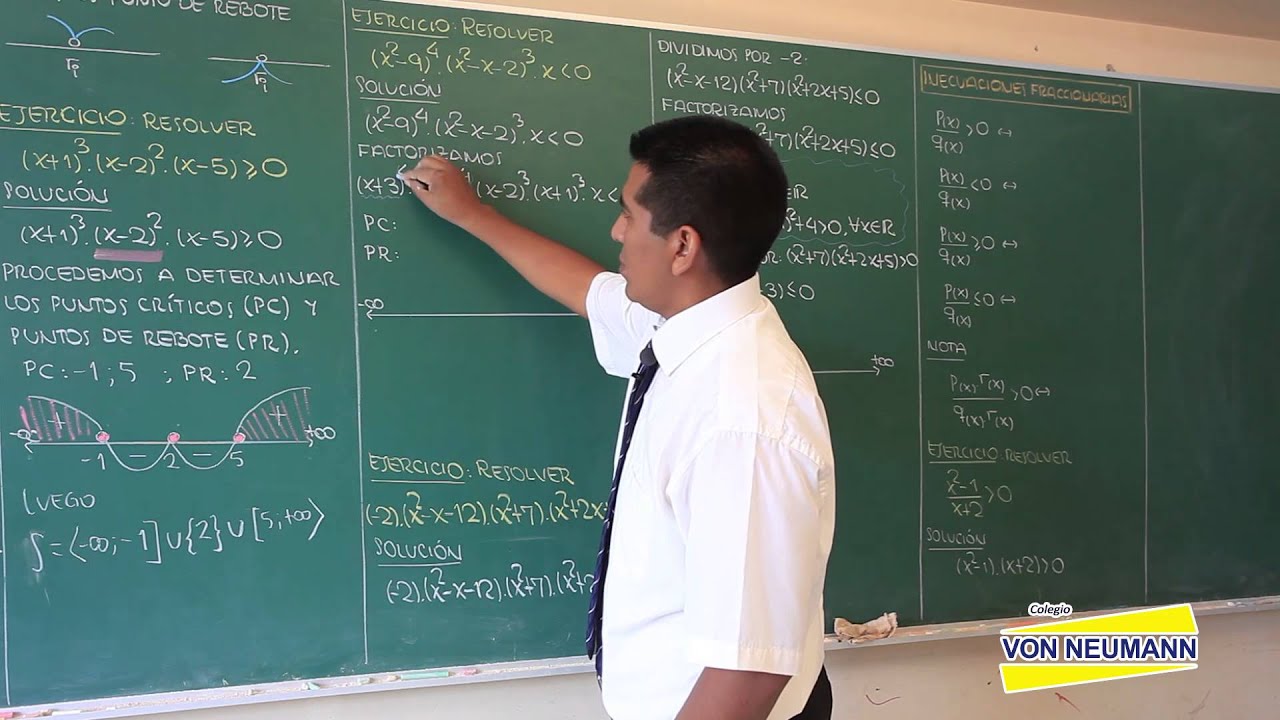 PUNTO DE REBOTE
EJERCICIO: RESOLVER
(x+1)³.(x-2)².(x-5)≥0
SOLUCIÓN
(x+1)³.(x-2)².(x-5)≥0
PROCEDEMOS A DETERMINAR
LOS PUNTOS CRÍTICOS (PC) Y
PUNTOS DE REBOTE (PR).
PC:-1;5 ; PR:2
+ +
-∞ +∞
-1 - 2 - 5
LUEGO
S=⟨-∞;-1]∪{2}∪[5;+∞⟩
EJERCICIO: RESOLVER
(x²-9)⁴.(x²-x-2)³.x<0
SOLUCIÓN
(x²-9)⁴.(x²-x-2)³.x<0
FACTORIZAMOS
(x+3) (x-2)³.(x+1)³.x<
PC:
PR:
-∞
EJERCICIO: RESOLVER
(-2).(x²-x-12).(x²+7).(x²+2x
SOLUCIÓN
(-2).(x²-x-12).(x²+7).(x²+2
DIVIDIMOS POR -2:
(x²-x-12)(x²+7)(x²+2x+5)≤0
FACTORIZAMOS
+7)(x²+2x+5)≤0
+4>0,∀x∈R
(x²+7)(x²+2x+5)>0
3)≤0
+∞
INECUACIONES FRACCIONARIAS
P(x)/q(x)>0 ↔
P(x)/q(x)<0 ↔
P(x)/q(x)≥0 ↔
P(x)/q(x)≤0 ↔
NOTA
P(x).r(x)/q(x).r(x)>0↔
EJERCICIO: RESOLVER
x²-1/x+2>0
SOLUCIÓN
(x²-1).(x+2)>0
Colegio
VON NEUMANN